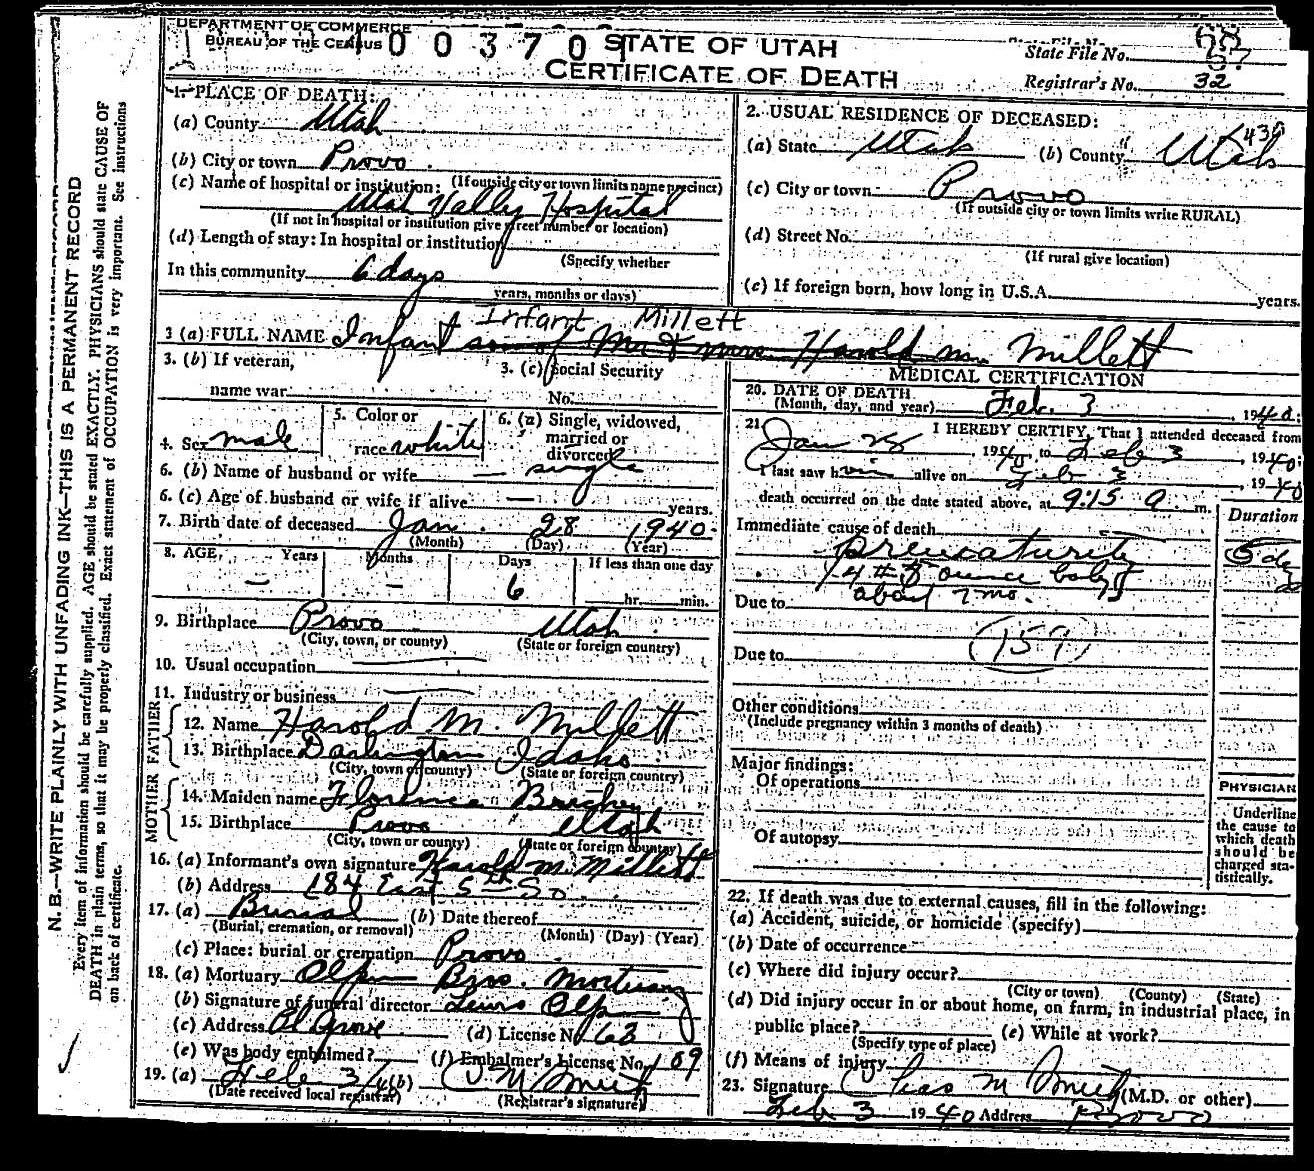 DEPARTMENT OF COMMERCE
BUREAU OF THE CENSUS
0 0 3 7 0 1
STATE OF UTAH
CERTIFICATE OF DEATH
State File No. 67
Registrar's No. 32
N. B.—WRITE PLAINLY WITH UNFADING INK—THIS IS A PERMANENT RECORD
Every item of information should be carefully supplied. AGE should be stated EXACTLY. PHYSICIANS should state CAUSE OF
DEATH in plain terms, so that it may be properly classified. Exact statement of OCCUPATION is very important. See instructions
on back of certificate.
1. PLACE OF DEATH:
(a) County Utah
(b) City or town Provo
(If outside city or town limits name precinct)
(c) Name of hospital or institution:
Utah Vally Hospital
(If not in hospital or institution give street number or location)
(d) Length of stay: In hospital or institution
(Specify whether
In this community 6 days
years, months or days)
2. USUAL RESIDENCE OF DECEASED:
(a) State Utah (b) County Utah
(c) City or town Provo
(If outside city or town limits write RURAL)
(d) Street No.
(If rural give location)
(e) If foreign born, how long in U.S.A. years.
Infant Millett
3 (a) FULL NAME Infant son of Mr & mrs. Harold m. Millett
3. (b) If veteran,
name war
3. (c) Social Security
No.
4. Sex male
5. Color or
race white
6. (a) Single, widowed,
married or
divorced single
6. (b) Name of husband or wife —
6. (c) Age of husband or wife if alive — years.
7. Birth date of deceased Jan. 28 1940
(Month) (Day) (Year)
8. AGE Years Months Days If less than one day
— — 6 hr. min.
9. Birthplace Provo Utah
(City, town, or county) (State or foreign country)
10. Usual occupation
11. Industry or business
FATHER
12. Name Harold M. Millett
13. Birthplace Darlington Idaho
(City, town or county) (State or foreign country)
MOTHER
14. Maiden name Florence
15. Birthplace Provo Utah
(City, town or county) (State or foreign country)
16. (a) Informant's own signature Harold M. Millett
(b) Address 184 East 5th So.
17. (a) Burial (b) Date thereof
(Burial, cremation, or removal) (Month) (Day) (Year)
(c) Place: burial or cremation Provo
18. (a) Mortuary Olpin Bros. Mortuary
(b) Signature of funeral director Lewis Olpin
(c) Address Pl Grove (d) License No. 63
(e) Was body embalmed? (f) Embalmer's License No. 109
19. (a) Feb 3/40 (b)
(Date received local registrar) (Registrar's signature)
MEDICAL CERTIFICATION
20. DATE OF DEATH
(Month, day, and year) Feb. 3, 1940.
21. I HEREBY CERTIFY, That I attended deceased from
Jan 28, 1940 to Feb 3, 1940.
I last saw him alive on Feb 3, 1940
death occurred on the date stated above, at 9:15 a. m.
Duration
Immediate cause of death
prematurity
4 # 5 ounce baby
Due to about 7 mo.
(159)
Due to
Other conditions
(Include pregnancy within 3 months of death)
Major findings:
Of operations
Of autopsy
PHYSICIAN
Underline
the cause to
which death
should be
charged sta-
tistically.
22. If death was due to external causes, fill in the following:
(a) Accident, suicide, or homicide (specify)
(b) Date of occurrence
(c) Where did injury occur?
(City or town) (County) (State)
(d) Did injury occur in or about home, on farm, in industrial place, in
public place? (e) While at work?
(Specify type of place)
(f) Means of injury
23. Signature Chas M Smith (M.D. or other)
Feb 3 1940 Address Provo